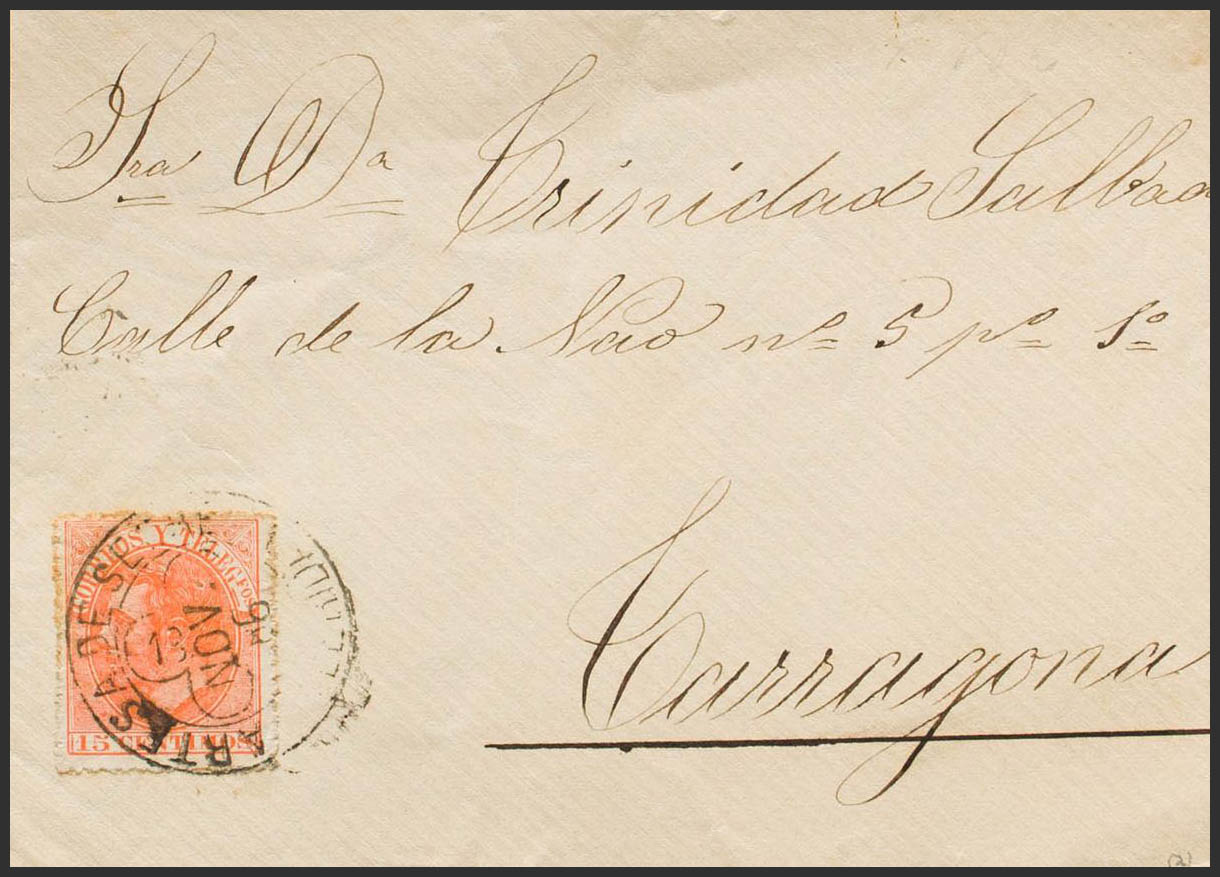 Sra Da Trinidad Salbad
Calle de la Nao no 5 po 1o
Tarragona
CORREOS Y TELEGFOS
15 CENTIMOS
ARTESA DE SEGRE
13 NOV
(2)